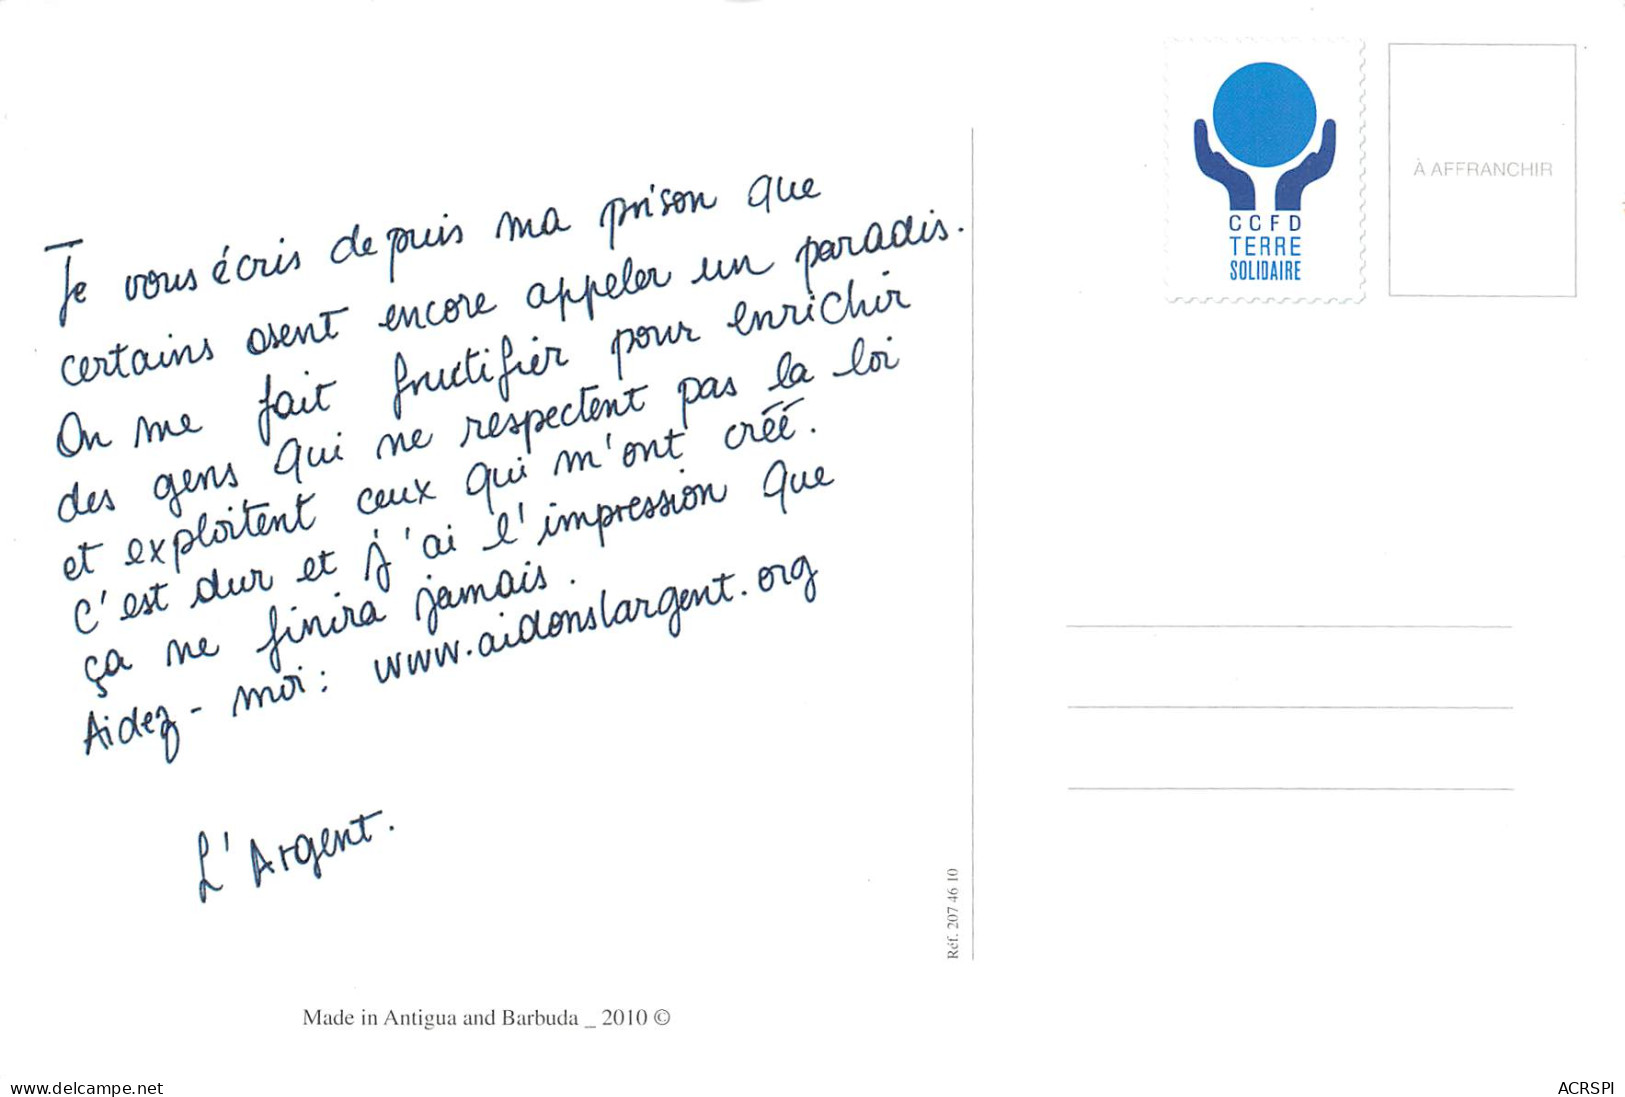 Je vous écris depuis ma prison que
certains osent encore appeler un paradis.
On me fait fructifier pour enrichir
des gens qui ne respectent pas la loi
et exploitent ceux qui m'ont créé.
C'est dur et j'ai l'impression que
ça ne finira jamais.
Aidez-moi : www.aidonslargent.org
L'Argent.
Made in Antigua and Barbuda _ 2010 ©
Réf. 207 46 10
CCFD
TERRE
SOLIDAIRE
À AFFRANCHIR
www.delcampe.net
ACRSPI